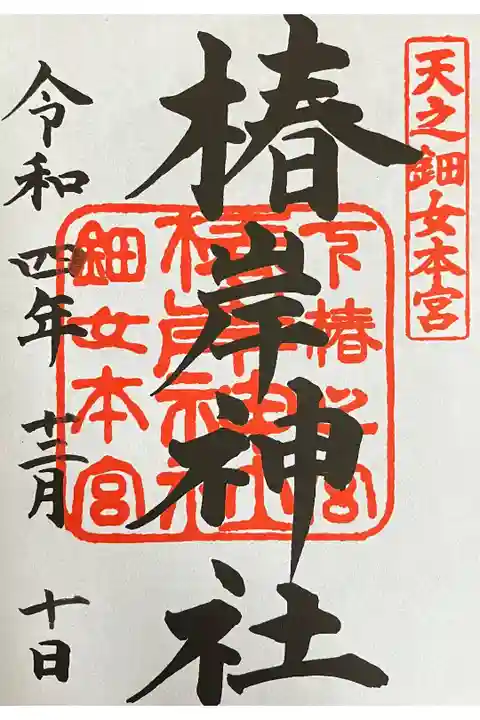 天之鈿女本宮
椿岸神社
鈿女本宮
令和四年十二月十日